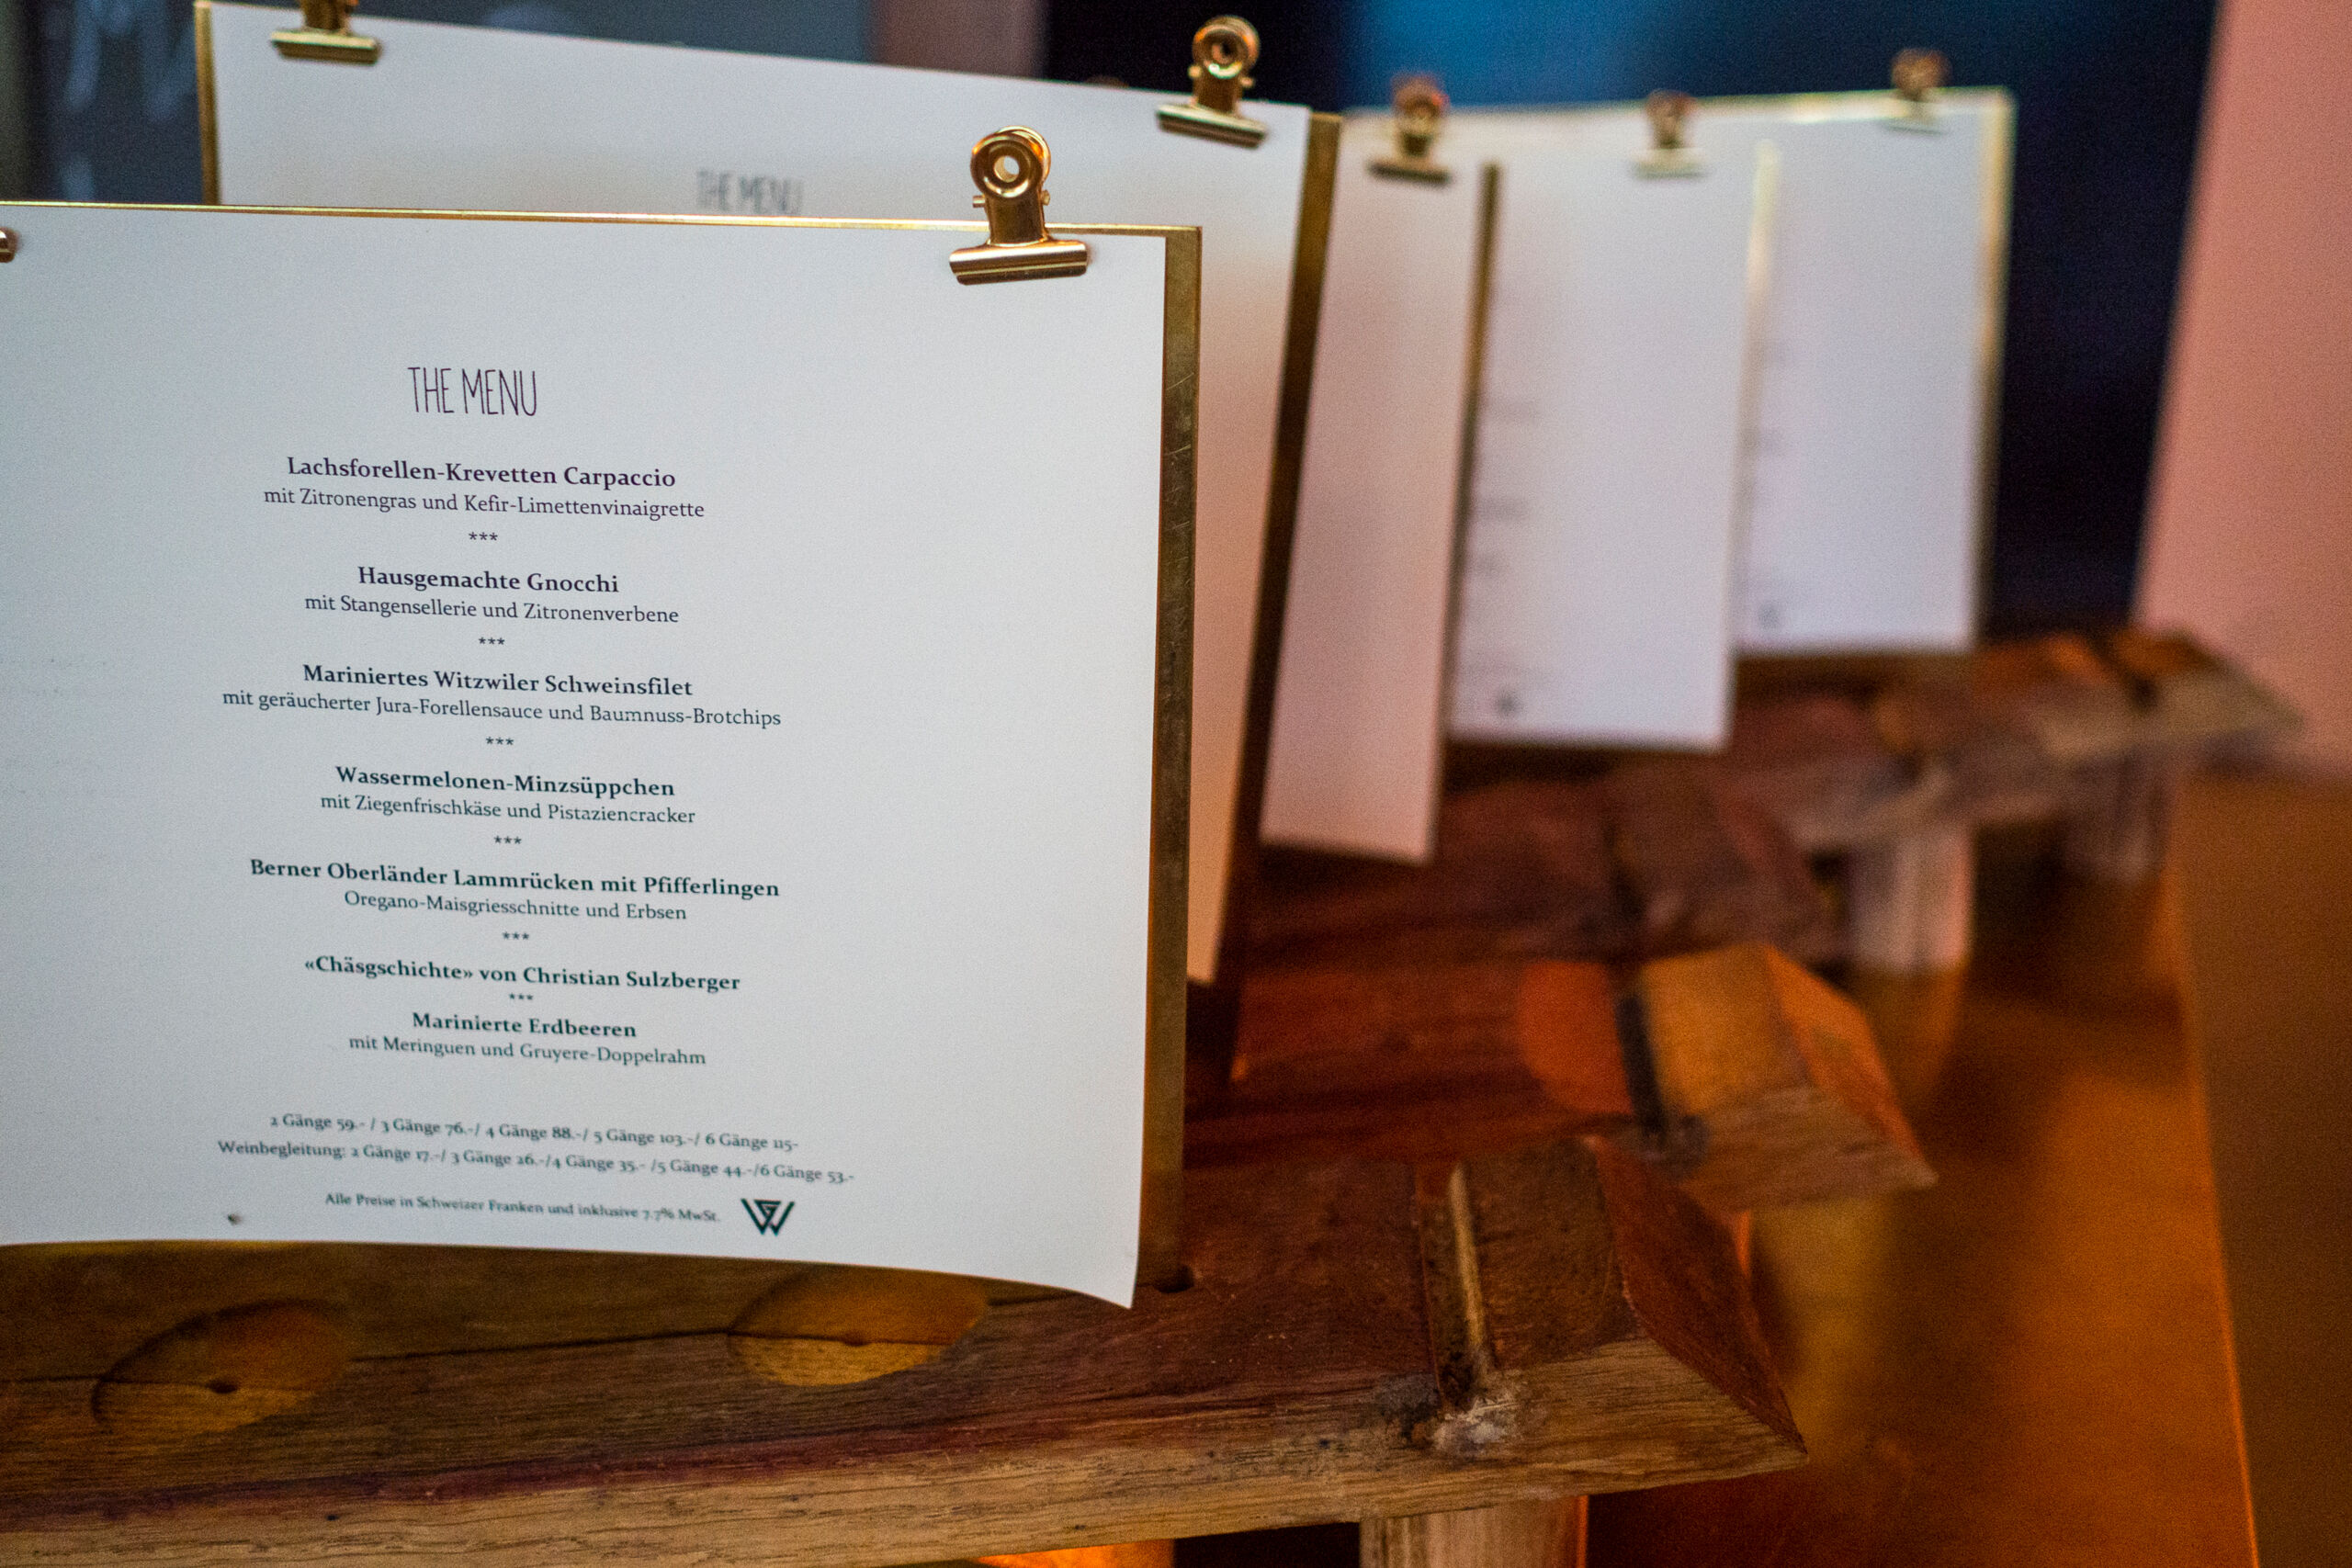 THE MENU
THE MENU
Lachsforellen-Krevetten Carpaccio
mit Zitronengras und Kefir-Limettenvinaigrette
***
Hausgemachte Gnocchi
mit Stangensellerie und Zitronenverbene
***
Mariniertes Witzwiler Schweinsfilet
mit geräucherter Jura-Forellensauce und Baumnuss-Brotchips
***
Wassermelonen-Minzsüppchen
mit Ziegenfrischkäse und Pistaziencracker
***
Berner Oberländer Lammrücken mit Pfifferlingen
Oregano-Maisgriesschnitte und Erbsen
***
«Chäsgschichte» von Christian Sulzberger
***
Marinierte Erdbeeren
mit Meringuen und Gruyere-Doppelrahm
2 Gänge 59.- / 3 Gänge 76.-/ 4 Gänge 88.-/ 5 Gänge 103.-/ 6 Gänge 115-
Weinbegleitung: 2 Gänge 17.-/ 3 Gänge 26.-/4 Gänge 35.- /5 Gänge 44.-/6 Gänge 53.-
Alle Preise in Schweizer Franken und inklusive 7.7% MwSt.